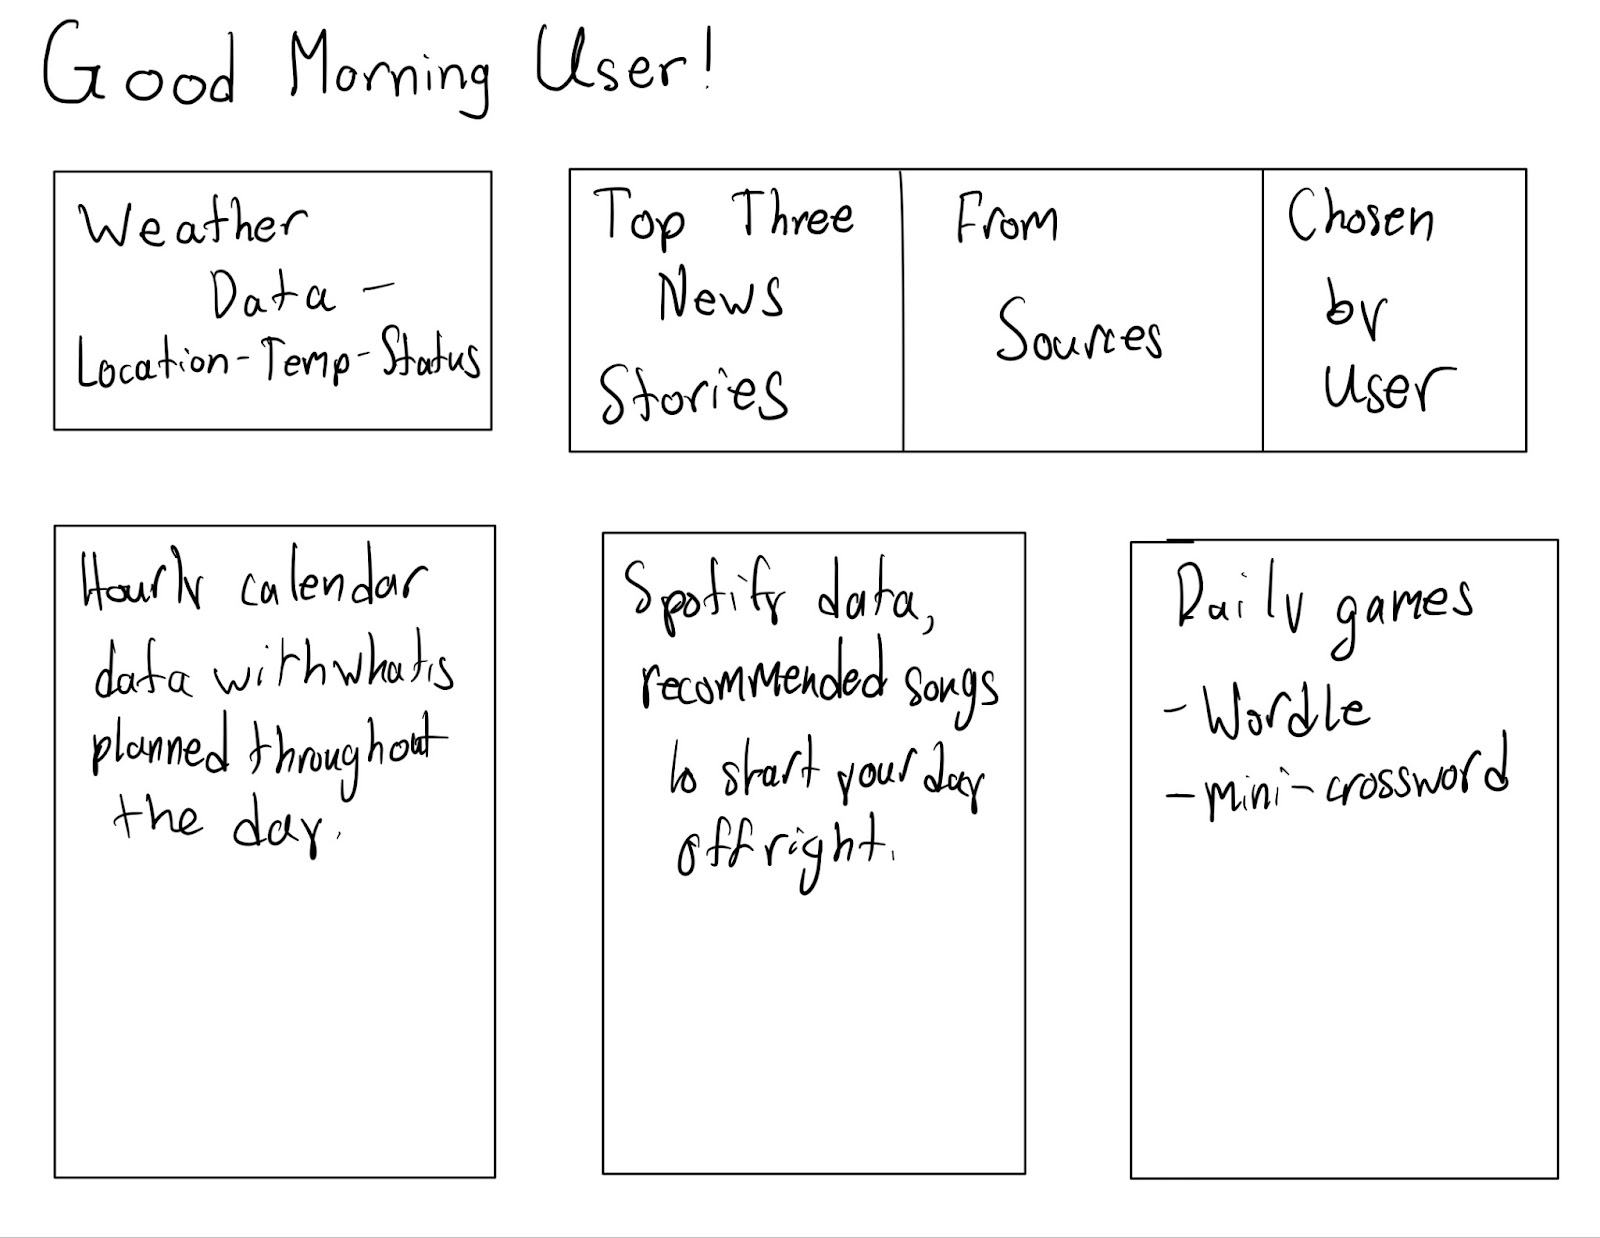 Good Morning User!
Weather
Data -
Location-Temp-Status
Top Three
News
Stories
From
Sources
Chosen
by
User
Hourly calendar
data with what is
planned throughout
the day.
Spotify data,
recommended songs
to start your day
off right.
Daily games
- Wordle
- mini-crossword